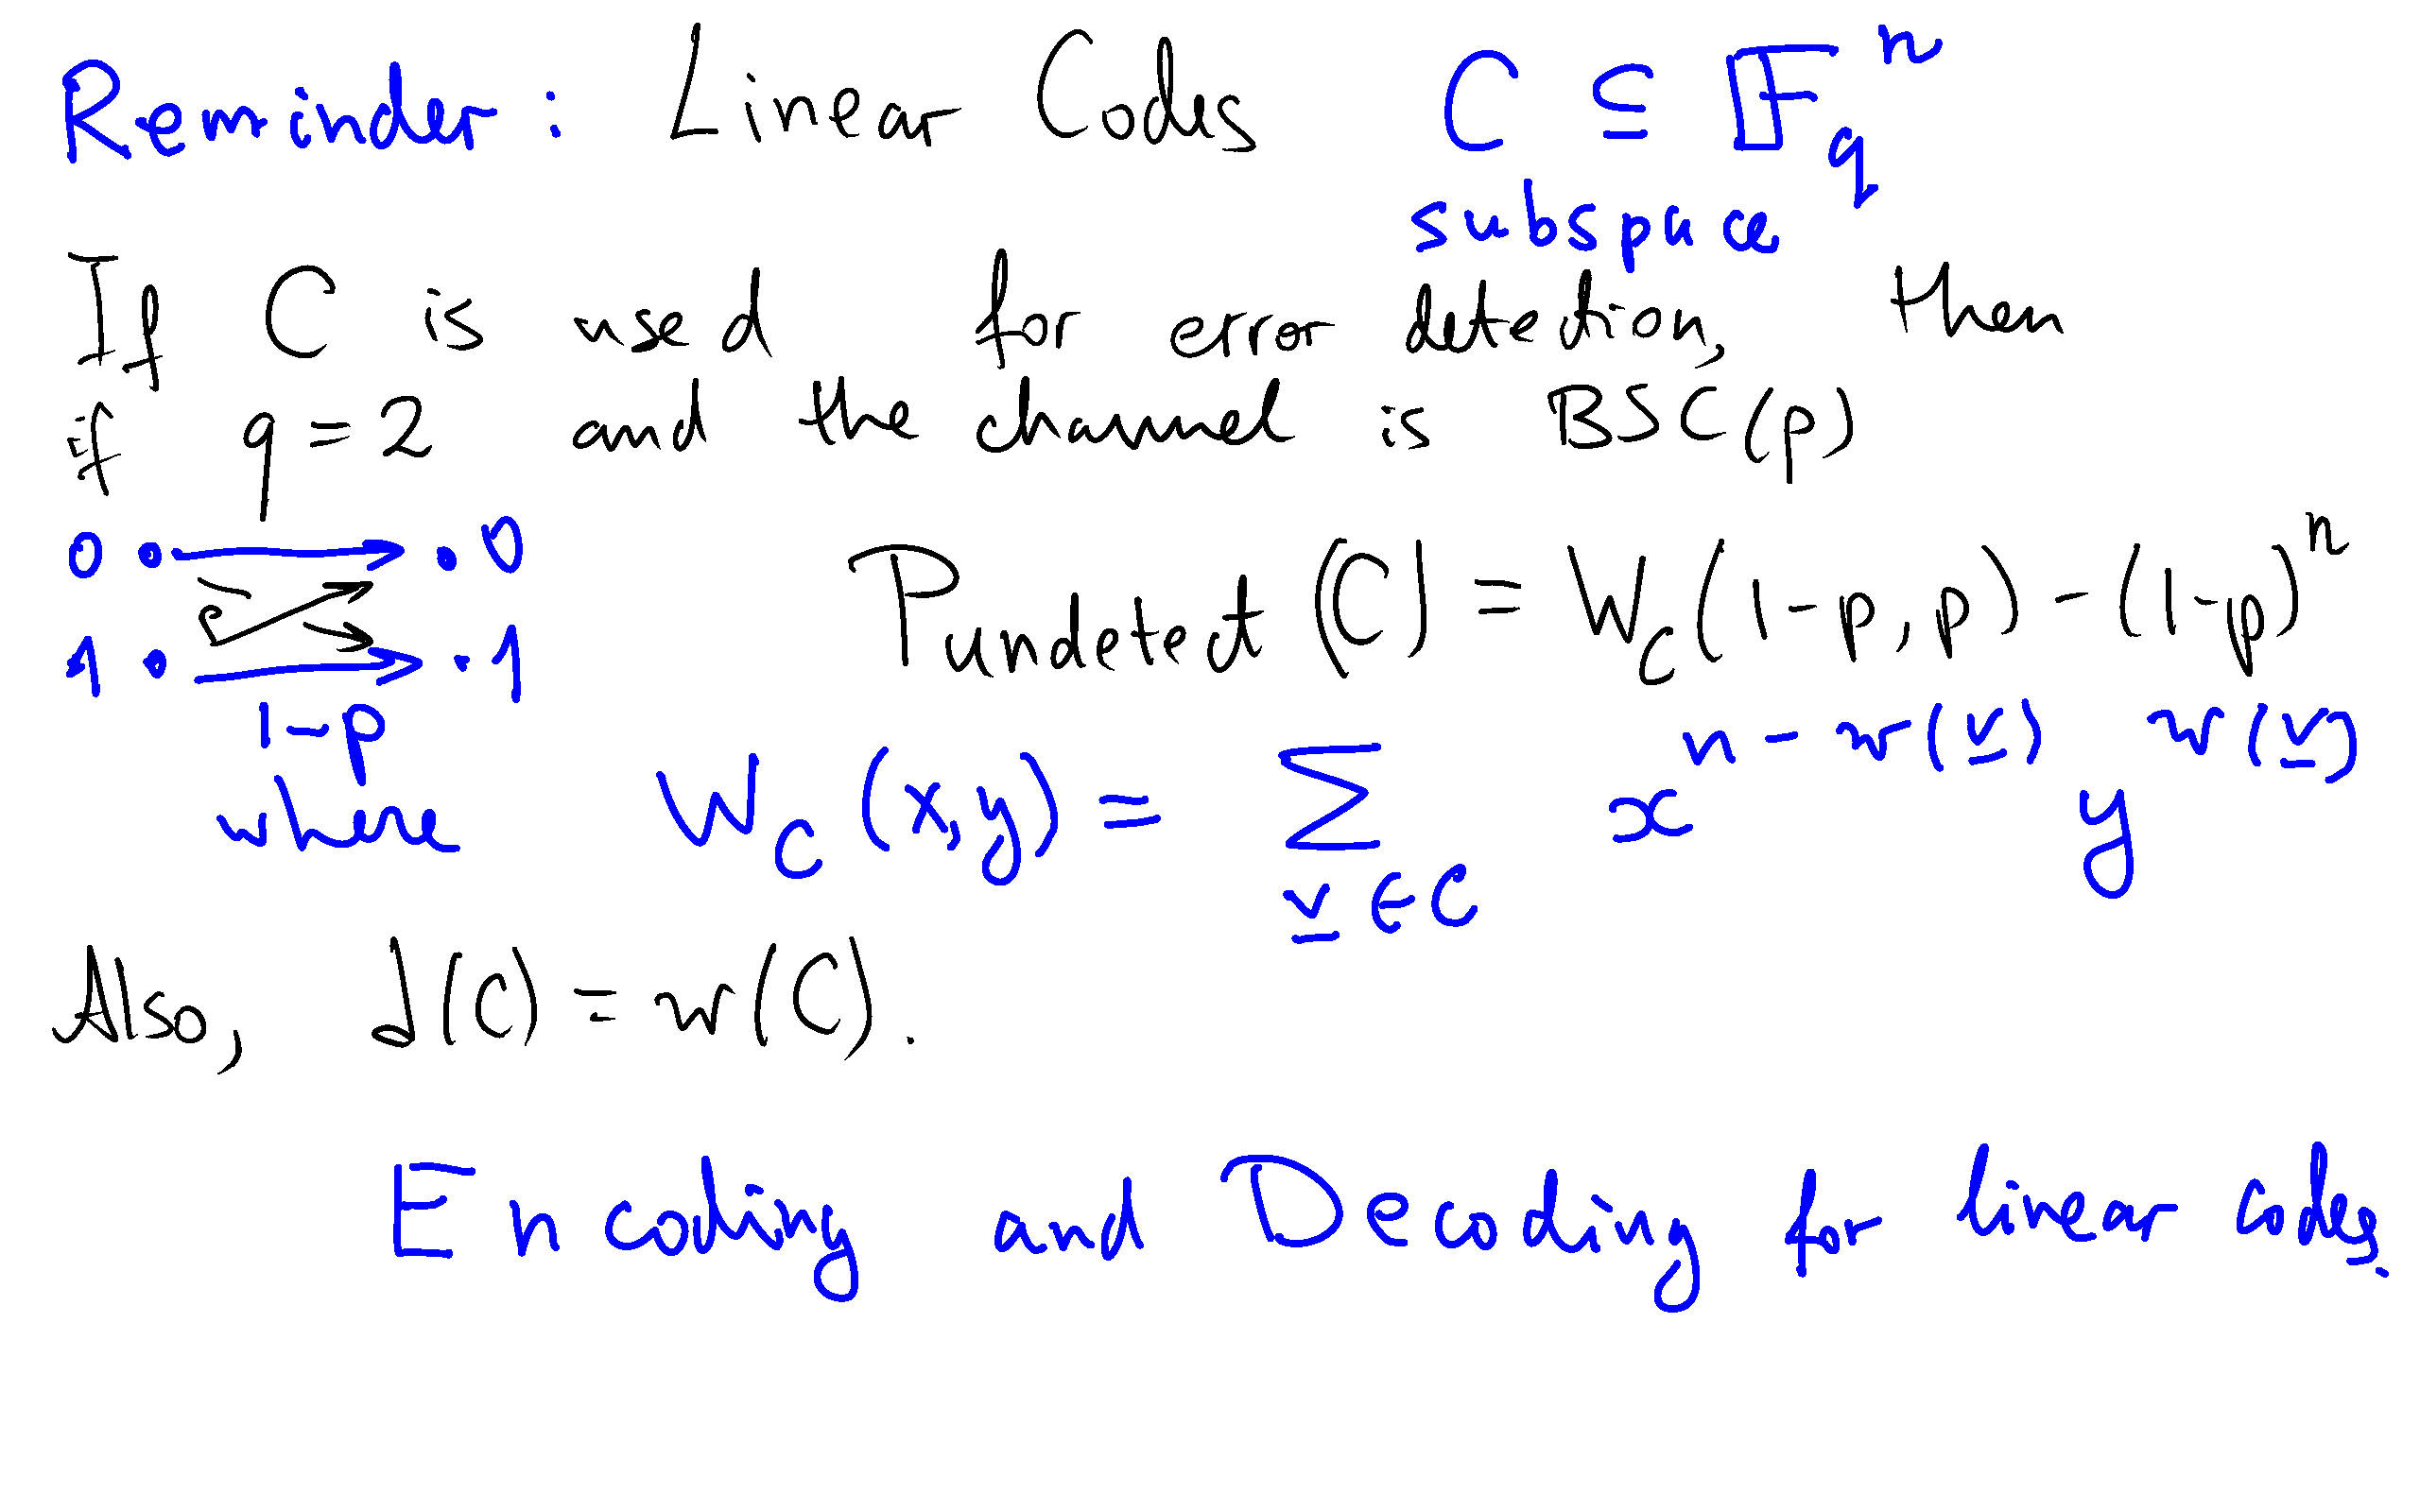 Reminder: Linear Codes C ⊆ 𝔽_q^n
subspace
If C is used for error detection, then
if q=2 and the channel is BSC(p)
0 0
P_undetect (C) = W_C(1-p, p) - (1-p)^n
1 1
1-p
where W_C (x,y) = ∑_{v̲ ∈ C} x^{n-w(v̲)} y^{w(v̲)}
Also, d(C) = w(C).
Encoding and Decoding for linear codes.